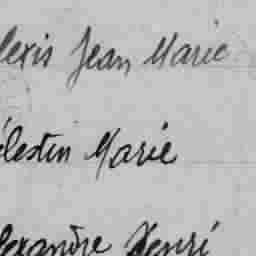 lexis Jean Marie
élestin Marie
lexandre Henri